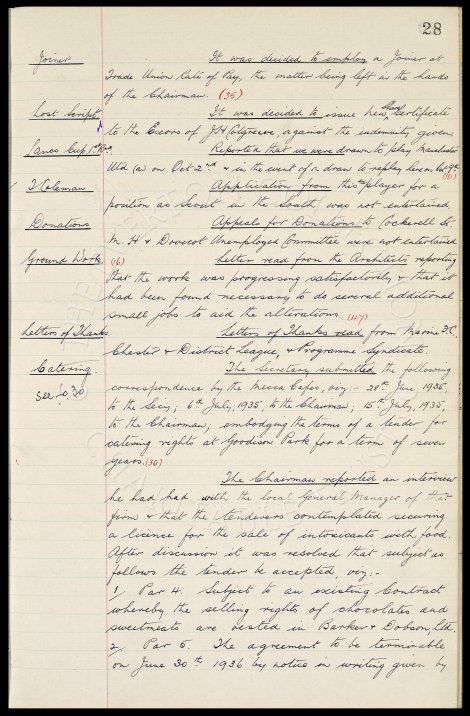 28
Joiner It was decided to employ a Joiner at
Trade Union Rate of Pay, the matter being left in the hands
of the Chairman. (35)
Lost Script. It was decided to issue new Share Certificate
to the Exors of J H Colgreave, against the indemnity given
Lancs Cup. 1st Rd. Reported that we were drawn to play Manchester
Utd (a) on Oct 2nd & in the event of a draw to replay here on Oct 9th
T Coleman Application from this player for a
position as Scout in the South was not entertained
Donations Appeals for Donations to Cockerell St.
M. H & Dovecot Unemployed Committee were not entertained
Ground Works. (16) Letter read from the Architects reporting
that the work was progressing satisfactorily & that it
had been found necessary to do several additional
small jobs to aid the alterations. (47)
Letters of Thanks Letters of Thanks read from Marine F.C.
Chester & District League, & Programme Syndicate.
Catering The Secretary submitted the following
see fo 30 correspondence by the Mecca Cafes, viz:- 28th June 1935,
to the Secy; 6th July, 1935, to the Chairman; 15th July, 1935,
to the Chairman, embodying the terms of a tender for
catering rights at Goodison Park for a term of seven
years. (30)
The Chairman reported an interview
he had had with the local General Manager of that
firm & that the tenderers contemplated securing
a licence for the sale of intoxicants with food.
After discussion it was resolved that subject as
follows the tender be accepted, viz:-
1/ Par 4. Subject to an existing Contract
whereby the selling rights of chocolates and
sweetmeats are vested in Barker & Dobson, Ltd.
2/ Par 5. The agreement to be terminable
on June 30th 1936 by notice in writing given by